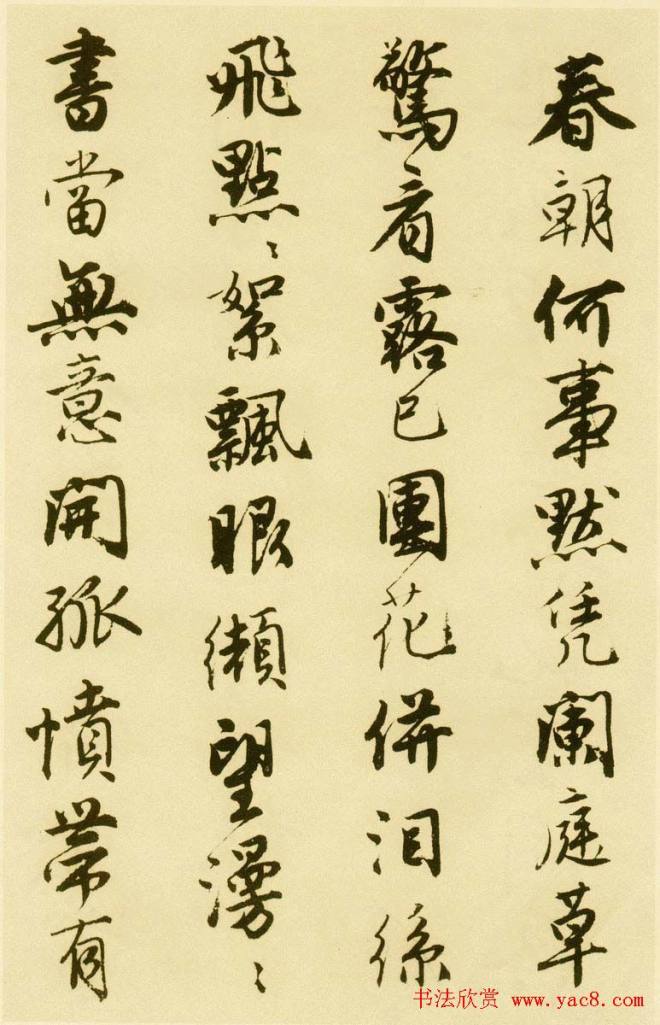 春朝何事默凭闌庭草
驚看露已團花併泪絲
飛點々絮飄眼纈望漫々
書當無意開孤憤帶有
书法欣赏 www.yac8.com